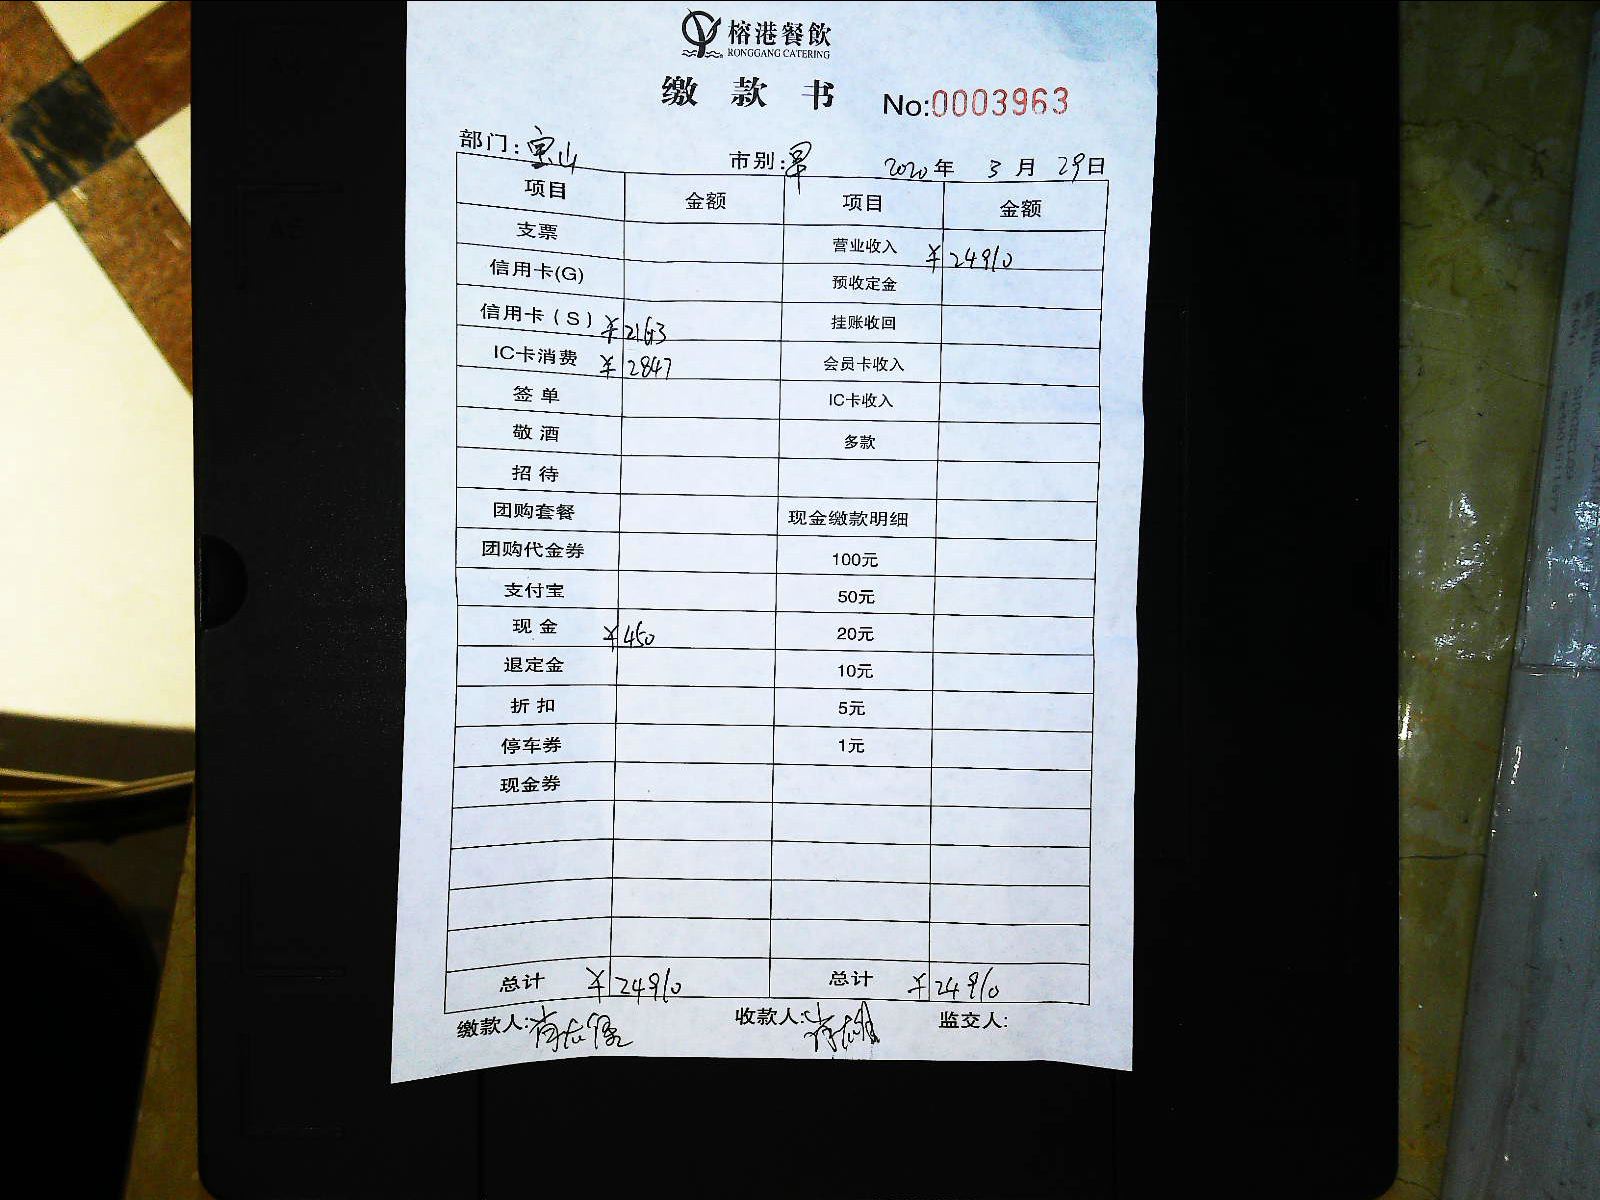 榕港餐飲
RONGGANG CATERING
缴款书 No:0003963
部门：宝山 市别：早 2020年 3月 29日
项目 金额 项目 金额
支票 营业收入 ¥24910
信用卡(G) 预收定金
信用卡（S） ¥21613 挂账收回
IC卡消费 ¥2847 会员卡收入
签单 IC卡收入
敬酒 多款
招待
团购套餐 现金缴款明细
团购代金券 100元
支付宝 50元
现金 ¥450 20元
退定金 10元
折扣 5元
停车券 1元
现金券
总计 ¥24910 总计 ¥24910
缴款人: 收款人: 监交人: